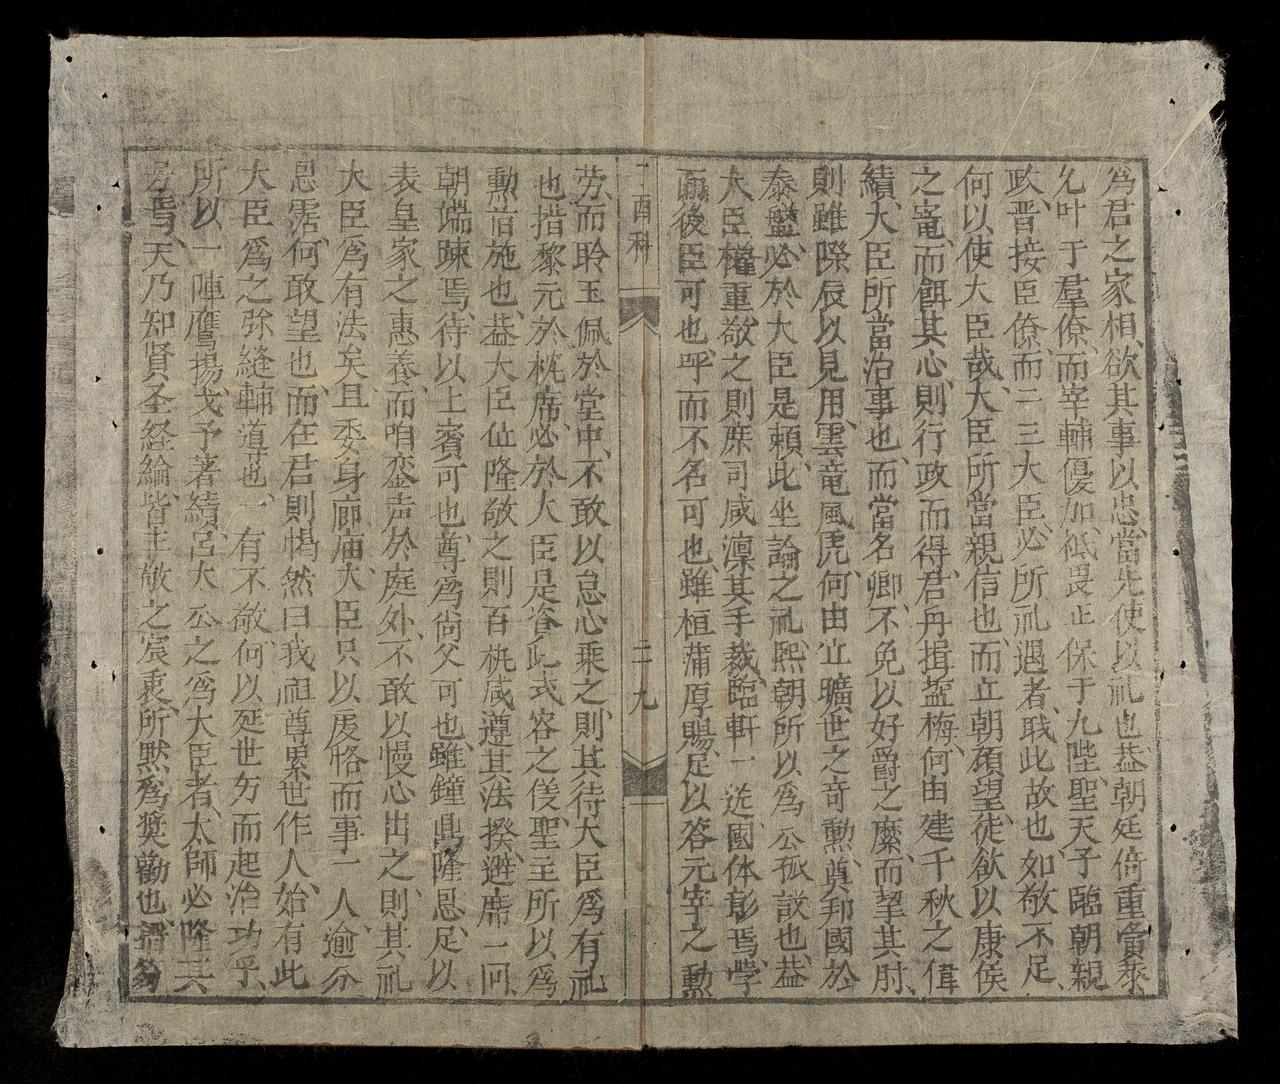 為君之家相、欲其事以忠、當先使以礼也、盖朝廷倚重、寅恭
允叶于羣僚、而宰輔優加、祗畏正保于九陛、聖天子臨朝親
政、晋接臣僚、而二三大臣、必所礼遇者、職此故也、如敬不足、
何以使大臣哉、大臣所當親信也、而立朝碩望、徒欲以康侯
之竜、而餌其心、則行政而得君、舟楫塩梅、何由建千秋之偉
績、大臣所當治事也、而當名卿、不免以好爵之縻、而掣其肘、
則雖際辰以見用、雲竜風虎、何由立曠世之奇勲、奠邦國於
泰盤、必於大臣是頼、此坐論之礼、熙朝所以為公孤設也、盖
大臣權重、敬之則庶司咸凛其手裁、臨軒一送、國体彰焉、学
焉後臣可也、呼而不名可也、雖桓蒲厚賜、足以答元宰之勲
一酉科 二九
芳、而聆玉佩於堂中、不敢以怠心乘之、則其待大臣為有礼
也、措黎元於枕席、必於大臣是咨、此式容之仪、聖主所以為
勲旧施也、盖大臣位隆、敬之則百執咸遵其法揆、避席一问、
朝端竦焉、待以上賓可也、尊為尚父可也、雖鐘鼎隆恩、足以
表皇家之惠養、而咱銮声於庭外、不敢以慢心出之、則其礼
大臣為有法矣、且委身廊庙、大臣只以虔恪而事一人、逾分
恩霑、何敢望也、而在君則惕然曰、我祖尊累世作人、始有此
大臣為之弥縫輔道也、一有不敬、何以延世劳而起治功乎、
所以一陣鷹揚、戈予著績、呂太公之為大臣者、太師必隆其
号焉、天乃知賢、圣経綸、皆王敬之宸衷、所黙為奬勸也、播芬